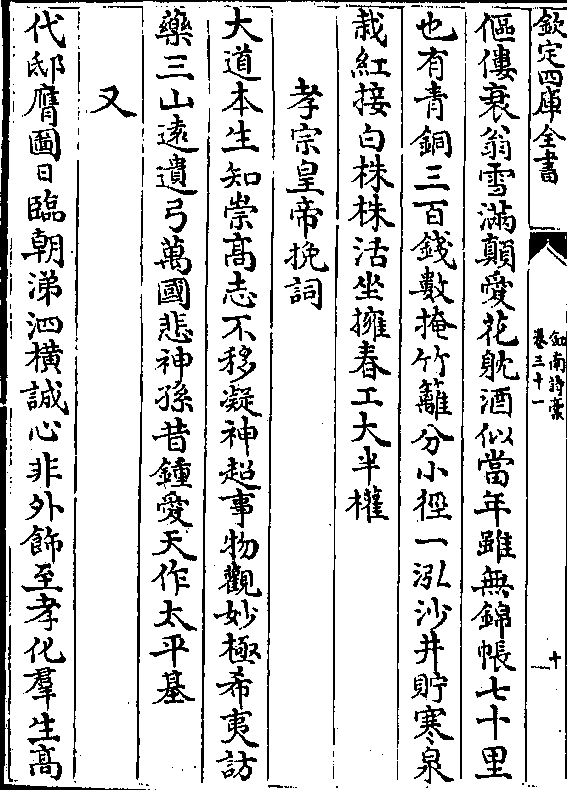 欽定四庫全書
劍南詩藁
卷三十一
十
傴僂衰翁雪滿顛愛花躭酒似當年雖無錦帳七十里
也有青銅三百錢數掩竹籬分小徑一泓沙井貯寒泉
栽紅接白株株活坐擁春工大半權
孝宗皇帝挽詞
大道本生知崇髙志不移凝神超事物觀妙極希夷訪
藥三山逺遺弓萬國悲神孫昔鍾愛天作太平基
又
代邸膺圖日臨朝涕泗横誠心非外飾至孝化羣生髙